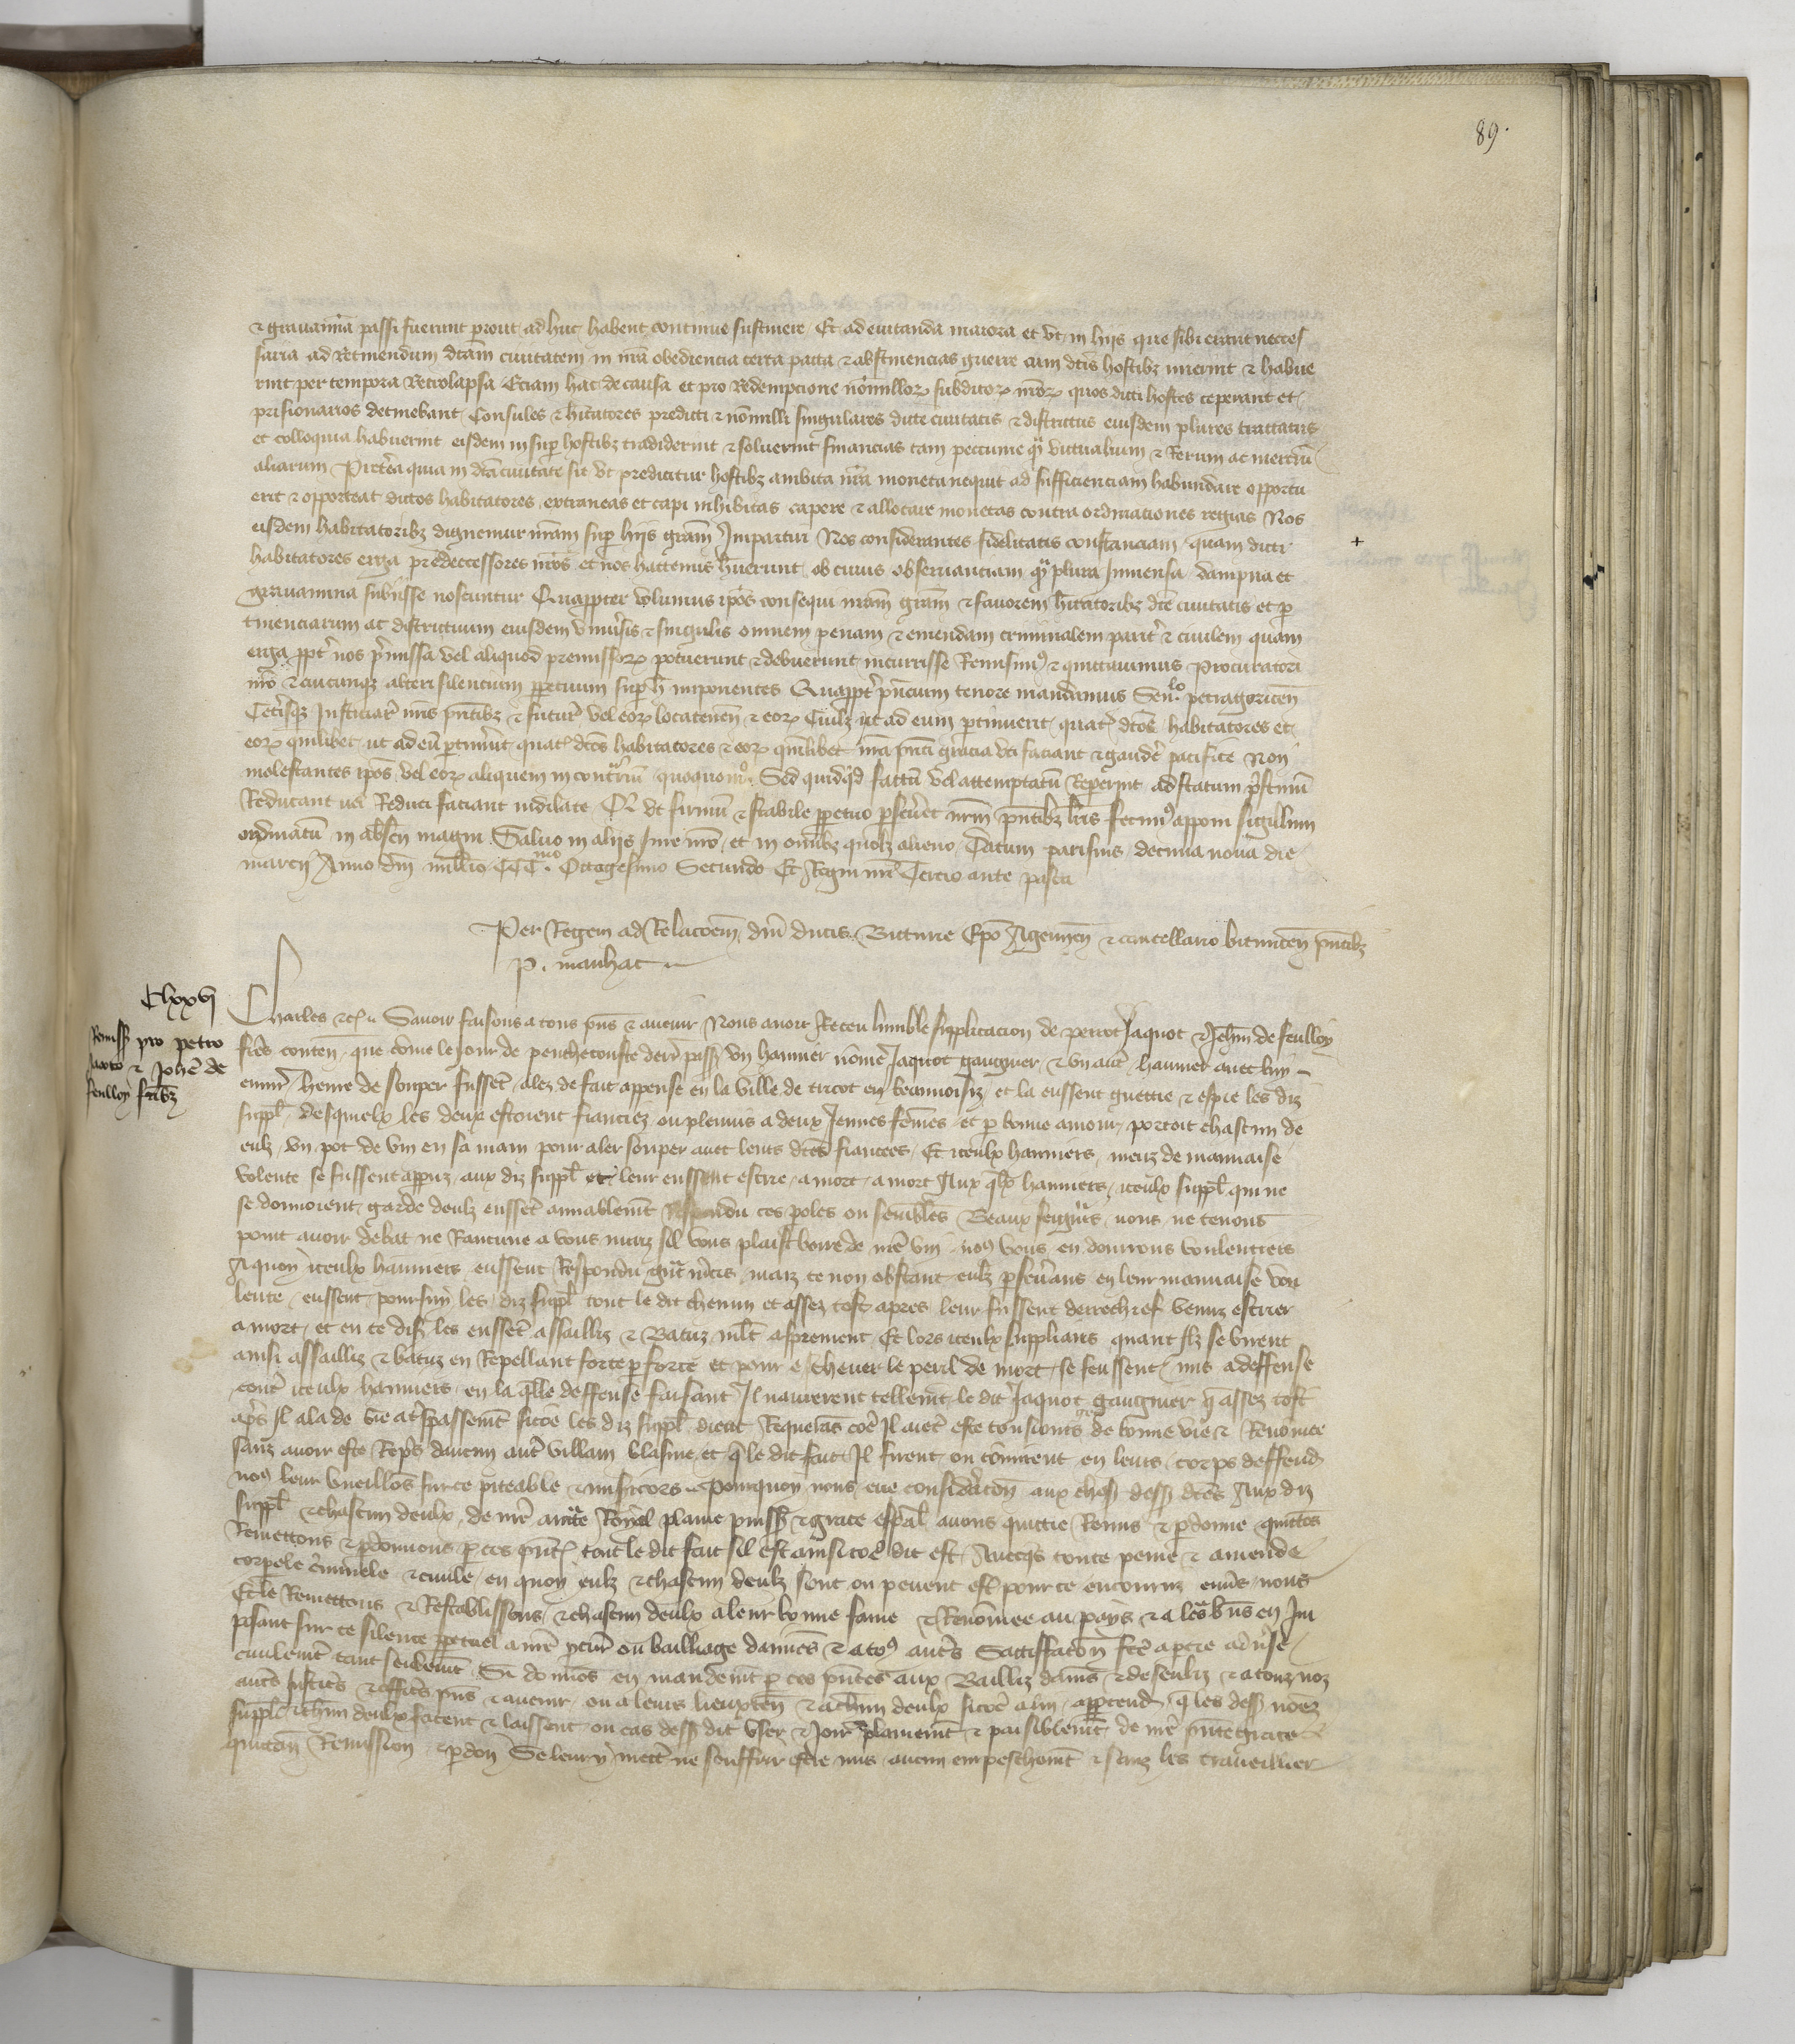 89.
& gravamina passi fuerunt prout adhuc habent continue sustinere Et ad evitanda maiora et ut in hiis que sibi erant neces
saria ad retinendum dcam civitatem in nra obediencia certa pacta & abstinencias guerre cum dcis hostibz inierint & habue
rint per tempora retrolapsa Eciam hac de causa et pro redempcione nonnullor subditor nror quos dicti hostes ceperant et
prisionarios detinebant Consules & hitatores predicti & nonnulli singulares dicte civitatis & districtus eiusdem plures tractatus
et colloquia habuerint eisdem insup hostibz tradiderint & solverint financias tam peccunie q victualium & rerum ac merciu
aliarum Preterea quia in dca civitate sic ut predicitur hostibz ambita nra moneta nequit ad sufficienciam habundare opportu
erit & opporteat dictos habitatores extraneas et capi inhibitas capere & allocare monetas contra ordinationes regias Nos
eisdem habitatoribz dignemur nram sup hiis gram Impartiri Nos considerantes fidelitatis constanciam quam dicti
habitatores erga predeccessores nros et nos hactenus huerunt ob cuius observanciam q plura Inmensa dampna et
gravamina subiisse noscuntur Quappter volumus ipos consequi nram gram & favorem hitatoribz dce civitatis et p
tinenciarum ac districtuum eiusdem universis & singulis omnem penam & emendam criminalem parit & civilem quam
erga ppt nos pmissa vel aliquod premissor potuerunt & debuerunt incurrisse Remisim9 & quittavimus Procuratori
nro & cuicunqz alteri silencium ppetuum sup h imponentes Quappt pncium tenore mandamus Senlo petragoricen
Cetisqz Justiciar nris pntibz & futur vel eor locatenen & eor Cuilz ut ad eum ptinuerit quat dcos habitatores et
eor quilibet ut ad eu ptinuit quat dcos habitatores & eor quilibet nra pnti gracia uti faciant & gaudere pacifice Non
molestantes ipos vel eor aliquem in contrium quoquomo Sed quidqd factu vel attemptatu reperint ad statum pstinu
Reducant vel Reduci faciant indilate Q ut firmu & stabile ppetuo pseveret nrm pntibz lris fecim9 apponi sigillum
ordinatu in absen magni Salvo in aliis Jure nro et in omibz quolz alieno Datum parisius decima nova die
marcii Anno dni millio CCCmo Octogesimo Secundo Et Regni nri Tercio ante pasca
Per Regem ad Relacoem dni ducis Biturie Epo Agennen & cancellario bituricen pntibz
P. manhac
Clxxvj
Remiss pro petro
Jaqto & Johe de
feulloy fribz
Charles &c Savoir faisons a tous pns & avenir Nous avoir Receu humble supplicacion de perrot Jaquot & Jehn de feulloy
fres conten que come le Jour de penthecouste derr pass un hanuier nome Jaquot gauguier & un autre hanuier avec luy
envir heure de souper fussent alez de fait appense en la ville de tricot en beauvoisiz et la eussent guettie & espie les diz
suppl desquelx les deux estoient fianciez ou plevis a deux Jeunes femes et p bonne amour portoit chascun de
eulz un pot de vin en sa main pour aler souper avec leurs dces fiancees Et iceulx hanuiers meuz de mauvaise
volente se fussent appruz aux diz suppl et leur eussent escrie a mort a mort Aux qlx hanuiers iceulx suppl qui ne
se donnoient garde deulz eussent amiablemt Respondu ces poles ou semblles Beaux seigns nous ne tenons
point avoir debat ne Rancune a vous maiz sil vous plaist boire de nre vin no9 vous en donrrons voulentiers
A quoy iceulx hanuiers eussent Respondu gnt mcis maiz ce non obstant eulz psevans en leur mauvaise vou
lente eussent poursuy les diz suppl tout le dit chemin et assez tost apres leur fussent derrechief venuz escrier
a mort et en ce dis les eussent assailliz & Batuz mlt asprement Et lors iceulx supplians quant ilz se virent
ainsi assailliz & batuz en Repellant force p force et pour eschever le peril de mort se feussent mis a deffense
cont iceulx hanuiers en la qlle deffense faisant Il navrerent tellemt le dit Jaquot gauguier q assez tost
aps Il ala de vie a tspassemt sicoe les diz suppl dient Requerans coe Il aient este tousiours de bonne vie & Renomee
sanz avoir este Repris daucun autre villain blasme et q le dit fait Il firent ou comirent en leurs corps deffend
no9 leur vueillons sur ce piteable & misicors Pourquoy nous eue consideracion aux choses dess dces Aux diz
suppl & chascun deulx de nre aucte Royal plaine puiss & grace espal avons quittie Remis & pdonne quittons
Remettons & pdonnons p ces pntes tout le dit fait sil est ainsi coe dit est Avecqs toute peine & amende
corpele criminele & civile en quoy eulz & chascun deulz sont ou pevent est pour ce encouruz envs nous
Et le Remettons & Restablissons & chascun deulx a leur bonne fame & Renommee au pays & a leurs bns en Im
psant sur ce silence ppetuel a nre pcur ou bailliage damiens & a to9 autres Sattisfaction fce apcie advse
civilemt tant seulemt Si donnos en mandemt p ces pntes aux Bailliz dams & de senliz & a touz noz
autres Justices & offices pns & avenir ou a leurs lieuxten & a chun deulx sicoe a lui apptend q les dess nomez
suppl & chun deulx facent & laissent ou cas dess dit user & Joir plainemt & paisiblemt de nre pnte grace
quittan Remission & pdon Se leur y mect ne souffrir estre mis aucun empeschemt & sanz les traveillier